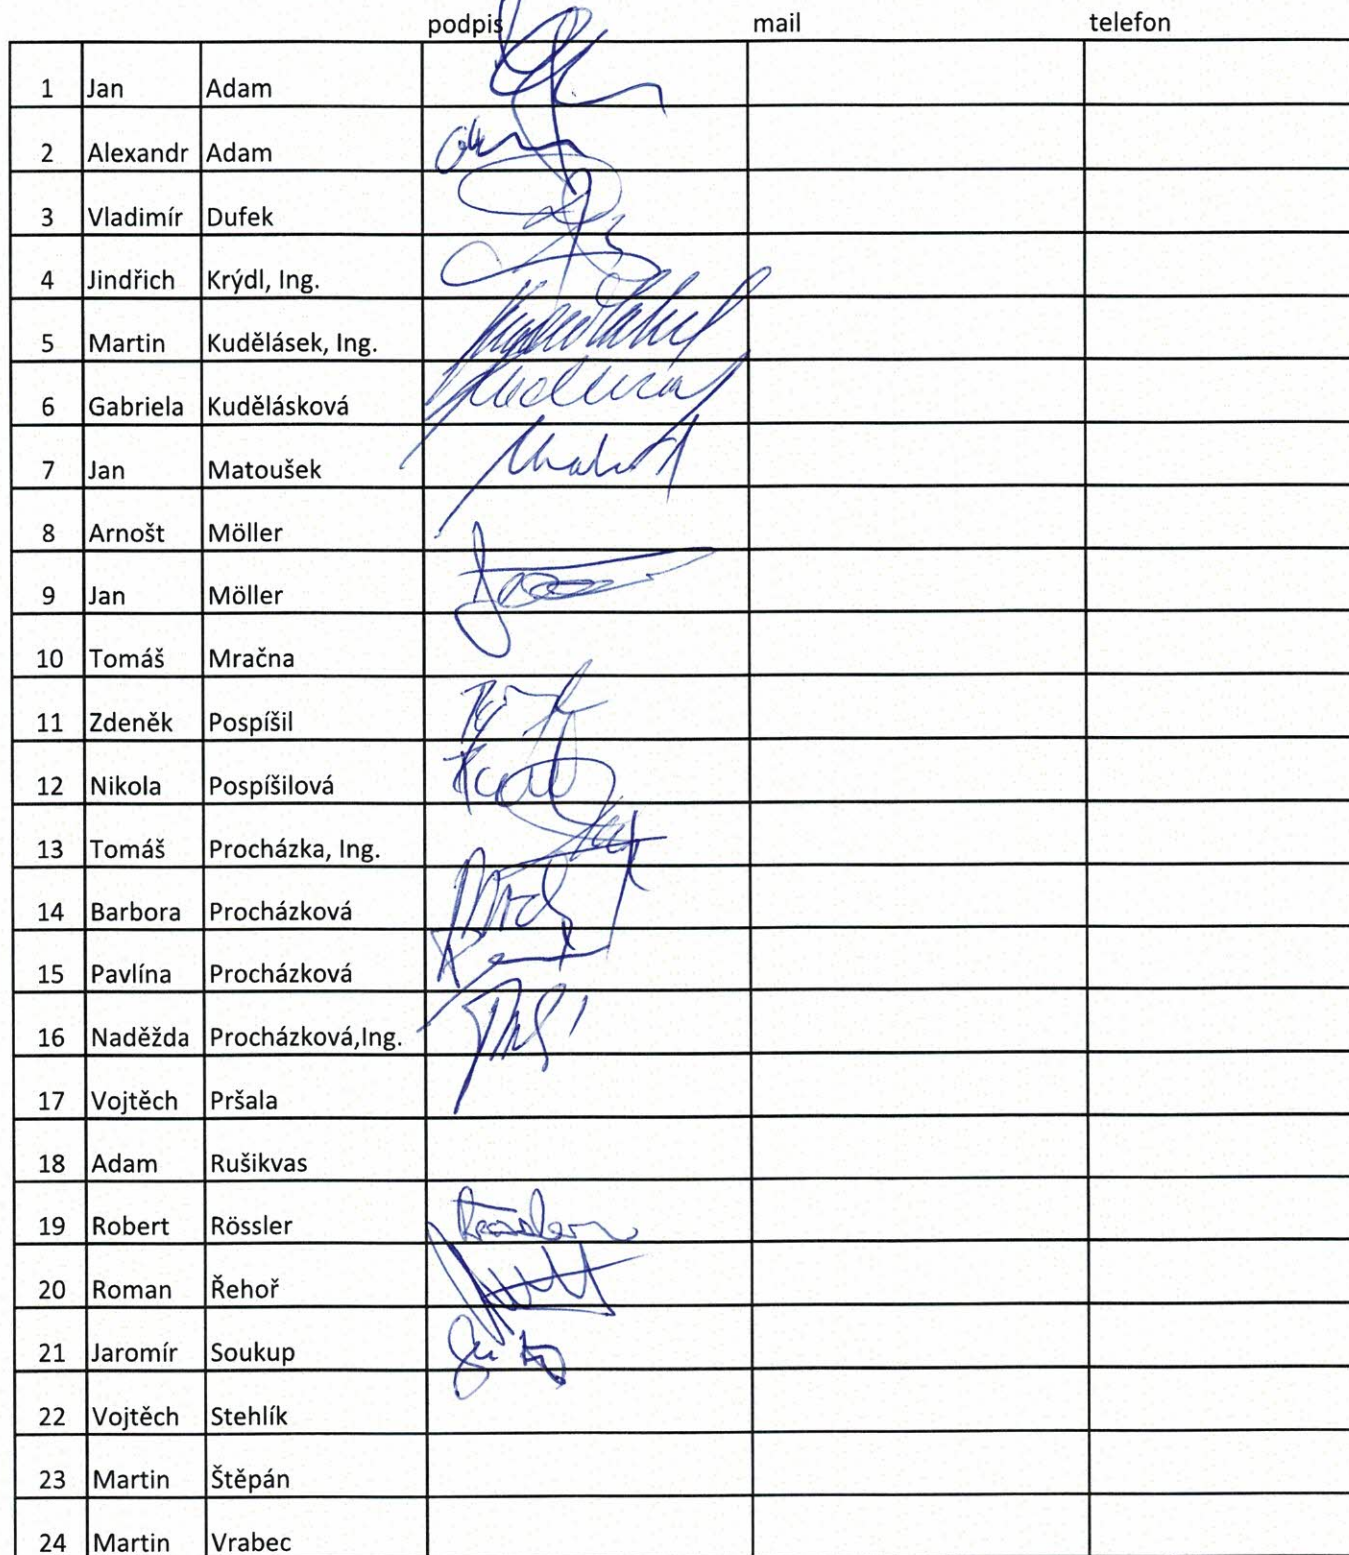 podpis mail telefon
1 Jan Adam
2 Alexandr Adam
3 Vladimír Dufek
4 Jindřich Krýdl, Ing.
5 Martin Kudělásek, Ing.
6 Gabriela Kudělásková
7 Jan Matoušek
8 Arnošt Möller
9 Jan Möller
10 Tomáš Mračna
11 Zdeněk Pospíšil
12 Nikola Pospíšilová
13 Tomáš Procházka, Ing.
14 Barbora Procházková
15 Pavlína Procházková
16 Naděžda Procházková,Ing.
17 Vojtěch Pršala
18 Adam Rušikvas
19 Robert Rössler
20 Roman Řehoř
21 Jaromír Soukup
22 Vojtěch Stehlík
23 Martin Štěpán
24 Martin Vrabec